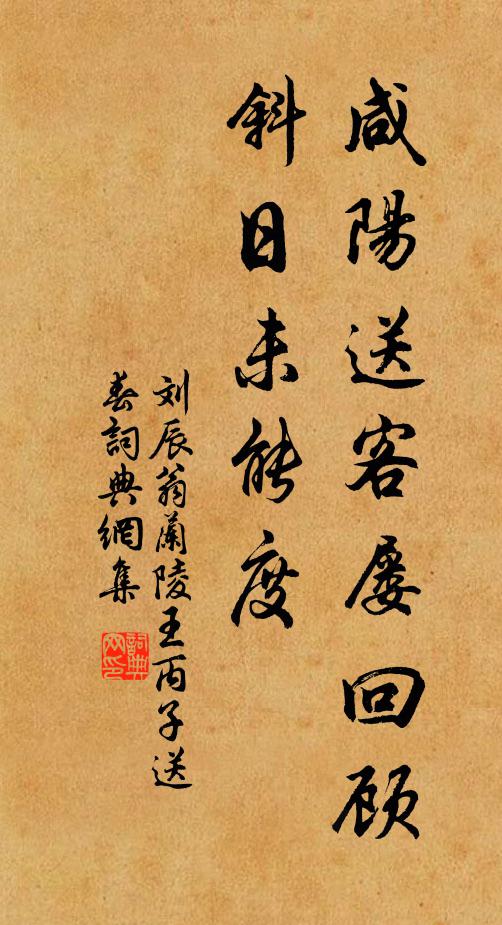 咸陽送客屡回顾
斜日未能度
刘辰翁蘭陵王丙子送
春詞典網集
詞典网印